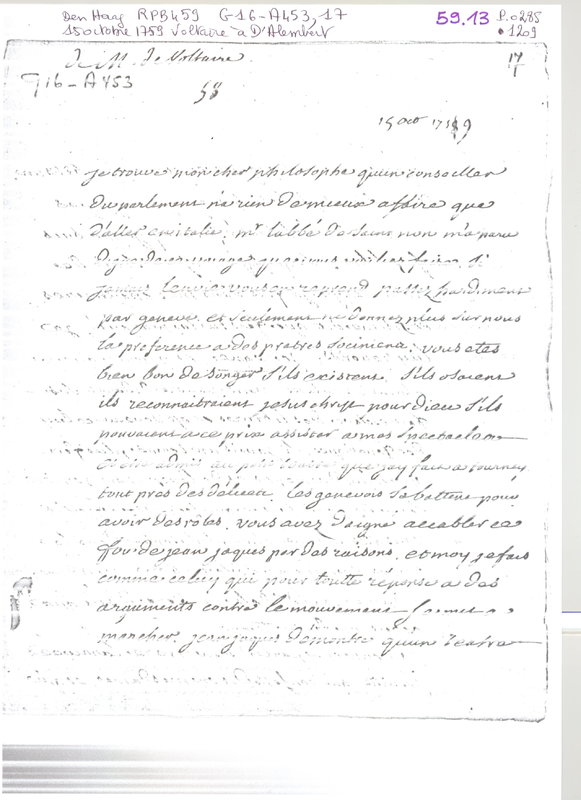 Den Haag RPB459 G16-A453, 17
15 octobre 1759 Voltaire à D'Alembert
59.13
P.0285
1209
de M. de Voltaire
G16-A453
17
58
15 oct 1759
je trouve mon cher philosophe qu'un conseiller
du parlement n'a rien de mieux a faire que
d'aller en italie. mr l'abbé de saint non m'a paru
digne
jamais l'envie vous en reprend passez hardiment
par geneve, et seulement ne donnez plus sur nous
la preference a des pretres sociniens. vous etes
bien bon de songer s'ils existent. s'ils osaient
ils reconnaitraient jesus christ pour dieu s'ils
pouvaient a ce prix assister a mes spectacles
que jay fait a tourney
tout près des délices. les genevois s'abattent pour
avoir des roles. vous avez daigné accabler ce
fou de jean jaques par des raisons. et moy je fais
comme celuy qui pour toutte réponse a des
arguments contre le mouvement se mit a
marcher. jean jaques démontre qu'un teatre